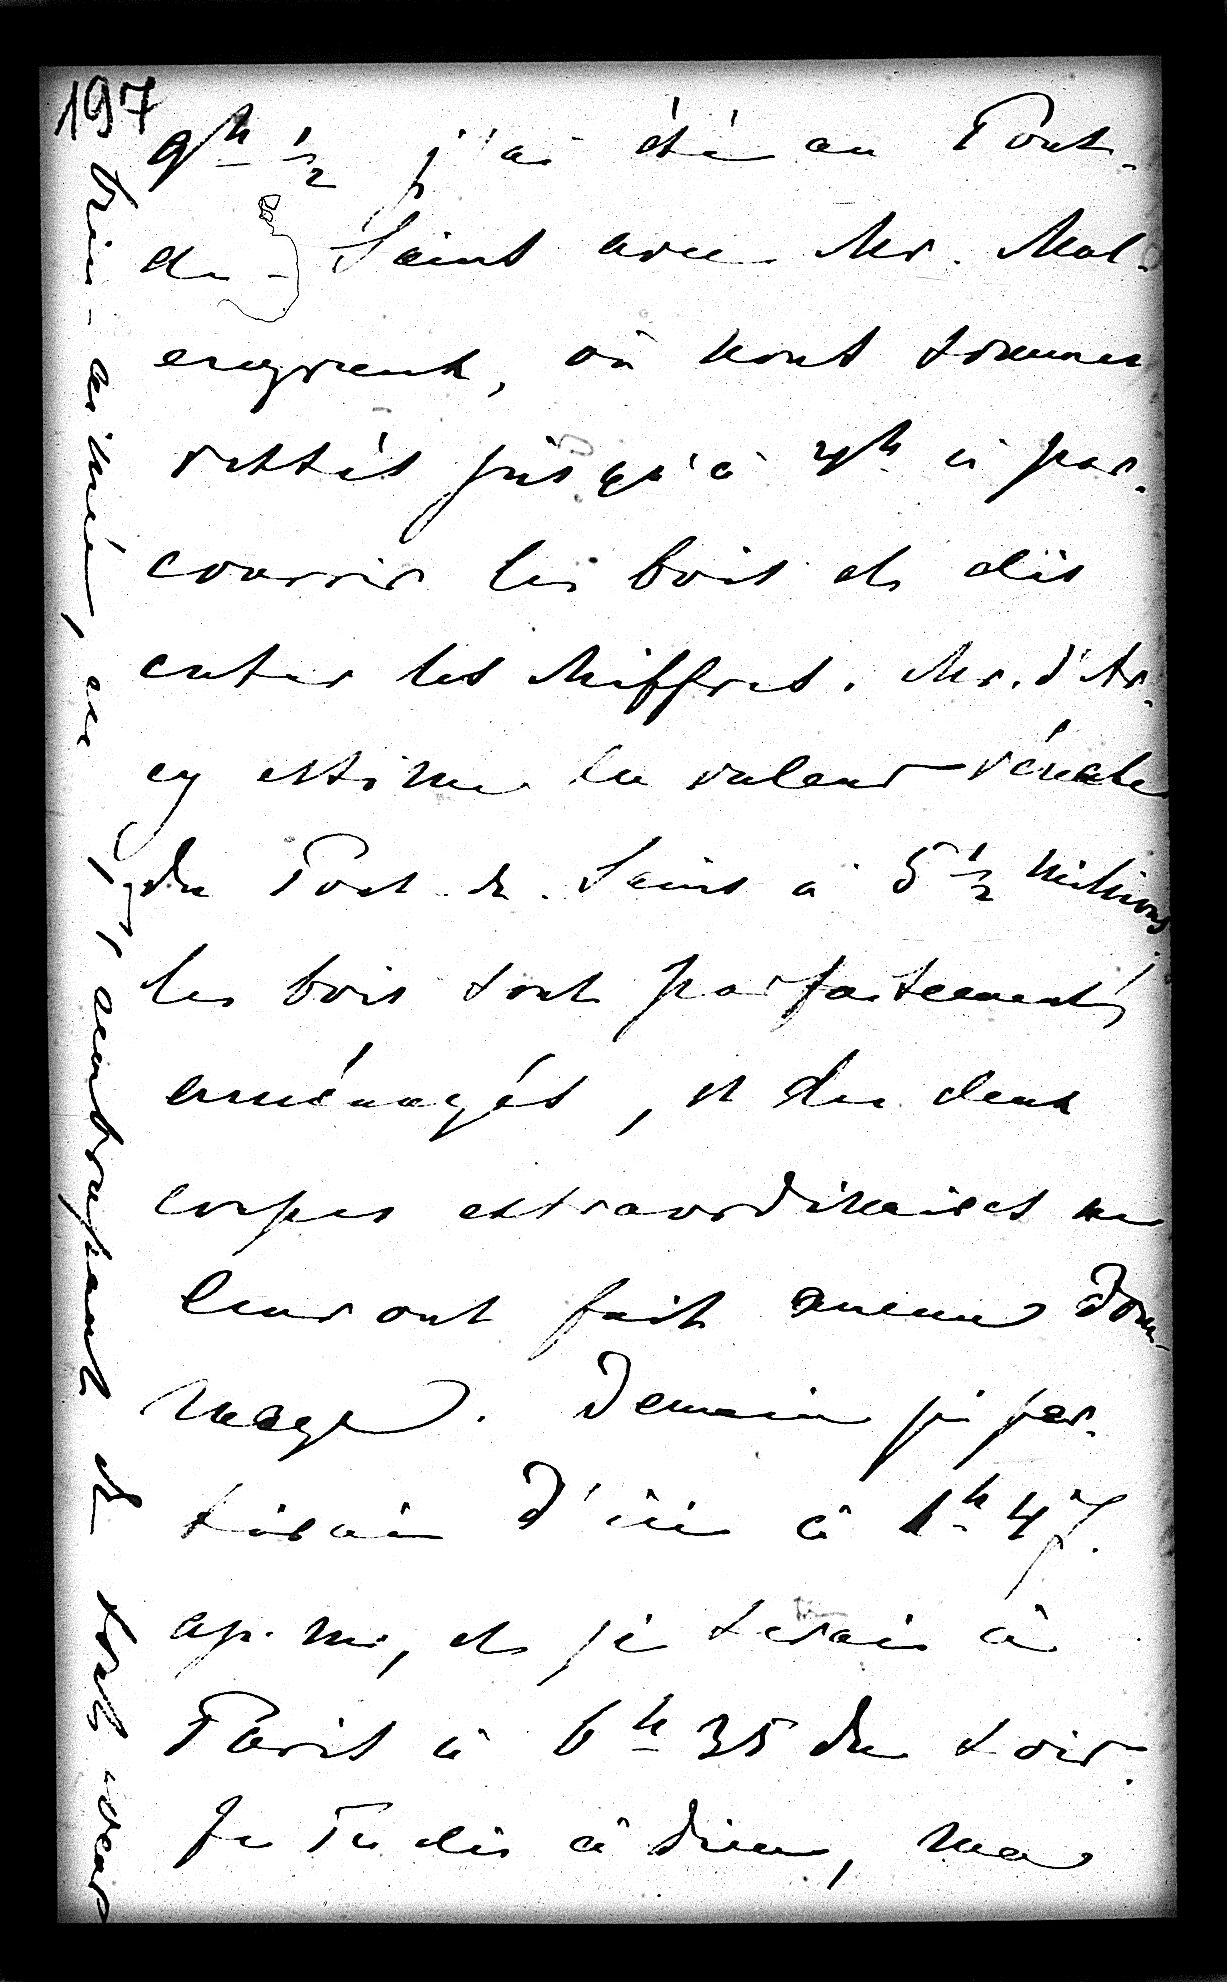 197
9h ½ j'ai été au Pont-
de-Sains avec Mr. Mal-
engreaux, où nous sommes
restés jusqu'à 4h à par-
courrir les bois et dis
cuter les chiffres. Mr. d'Ar-
cy estime la valeur vénale
du Pont de Sains à 5 ½ millions.
les bois sont parfaitement
aménagés, et les deux
coupes extraordinaires ne
leur ont fait aucun dom-
mage. Demain je par-
tirai d'ici à 1h 47
ap. m., et je serai à
Paris à 6h 35 du soir.
Je Te dis à dieu, ma
bien-aimée, en T'embrassant de tout cœur